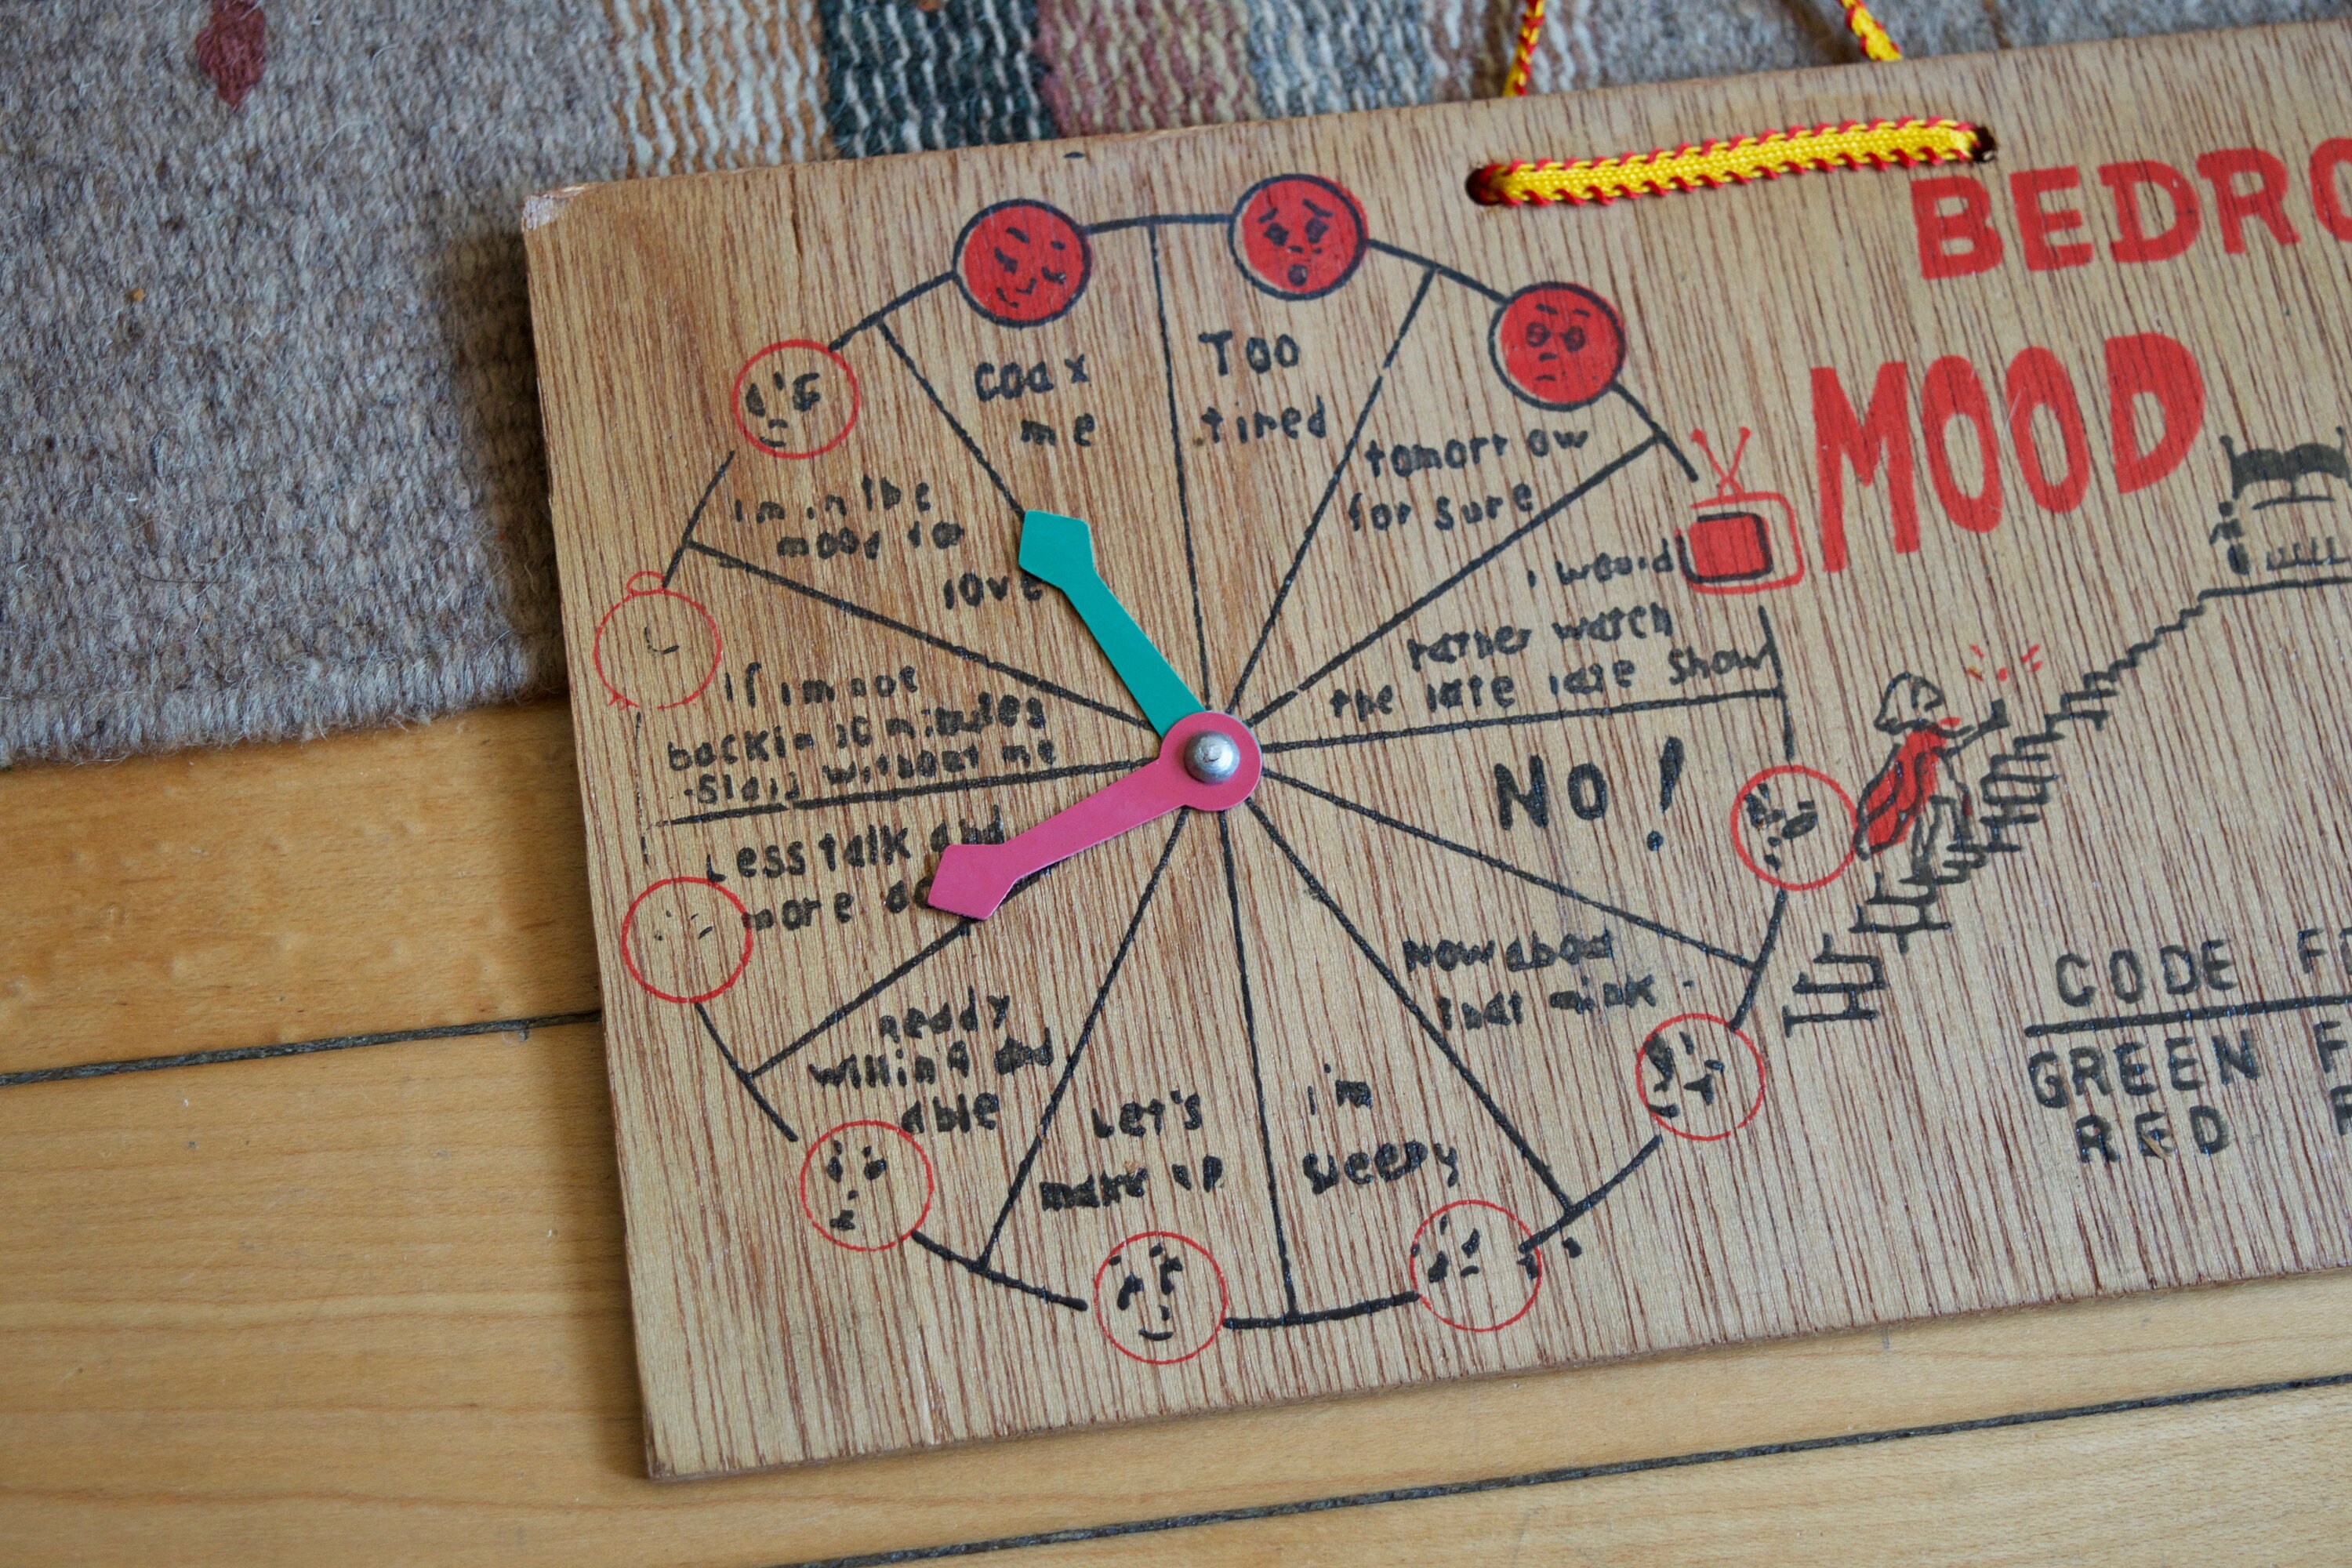 BEDRO
MOOD
coax
me
Too
tired
tomorrow
for sure
i would
rather watch
the late late show
NO!
How about
that mink -
i'm
sleepy
Let's
make up
ready
willing and
able
Less talk and
more
if i m not
back in 10 minutes
-start without me
i m in the
mood for
love
CODE
GREEN
RED